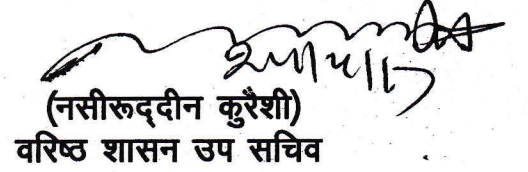 (नसीरूद्दीन कुरैशी)
वरिष्ठ शासन उप सचिव